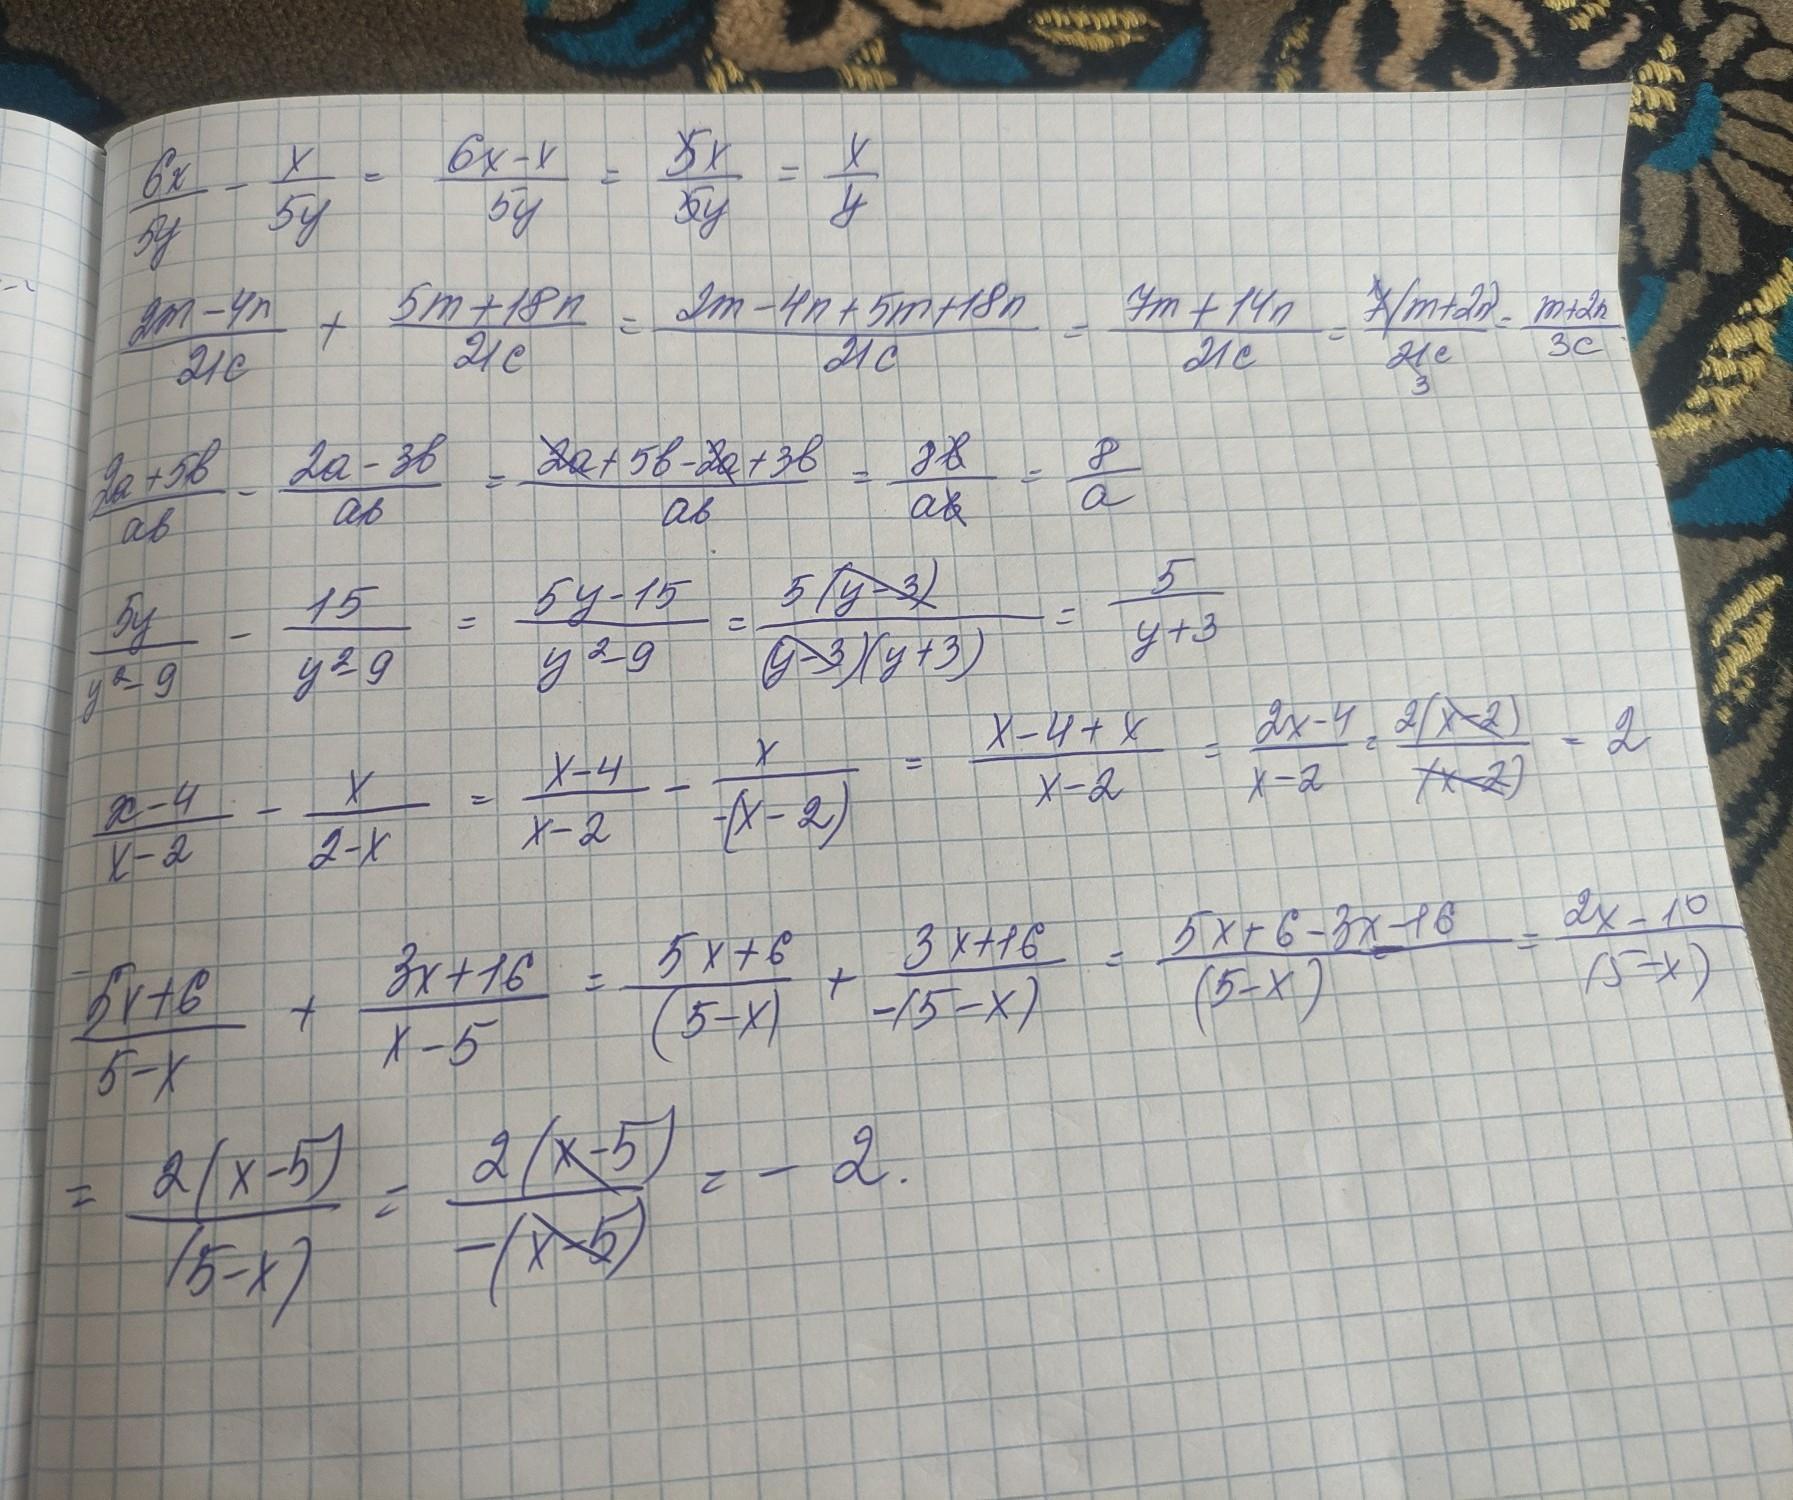 6x/5y - x/5y = (6x-x)/5y = 5x/5y = x/y
(2m-4n)/21c + (5m+18n)/21c = (2m-4n+5m+18n)/21c = (7m+14n)/21c = 7(m+2n)/21c 3 = (m+2n)/3c
(2a+5b)/ab - (2a-3b)/ab = (2a+5b-2a+3b)/ab = 8b/ab = 8/a
5y/(y²-9) - 15/(y²-9) = (5y-15)/(y²-9) = 5(y-3)/(y-3)(y+3) = 5/(y+3)
(x-4)/(x-2) - x/(2-x) = (x-4)/(x-2) - x/-(x-2) = (x-4+x)/(x-2) = (2x-4)/(x-2) = 2(x-2)/(x-2) = 2
(5x+6)/(5-x) + (3x+16)/(x-5) = (5x+6)/(5-x) + (3x+16)/-(5-x) = (5x+6-3x-16)/(5-x) = (2x-10)/(5-x)
= 2(x-5)/(5-x) = 2(x-5)/-(x-5) = -2.